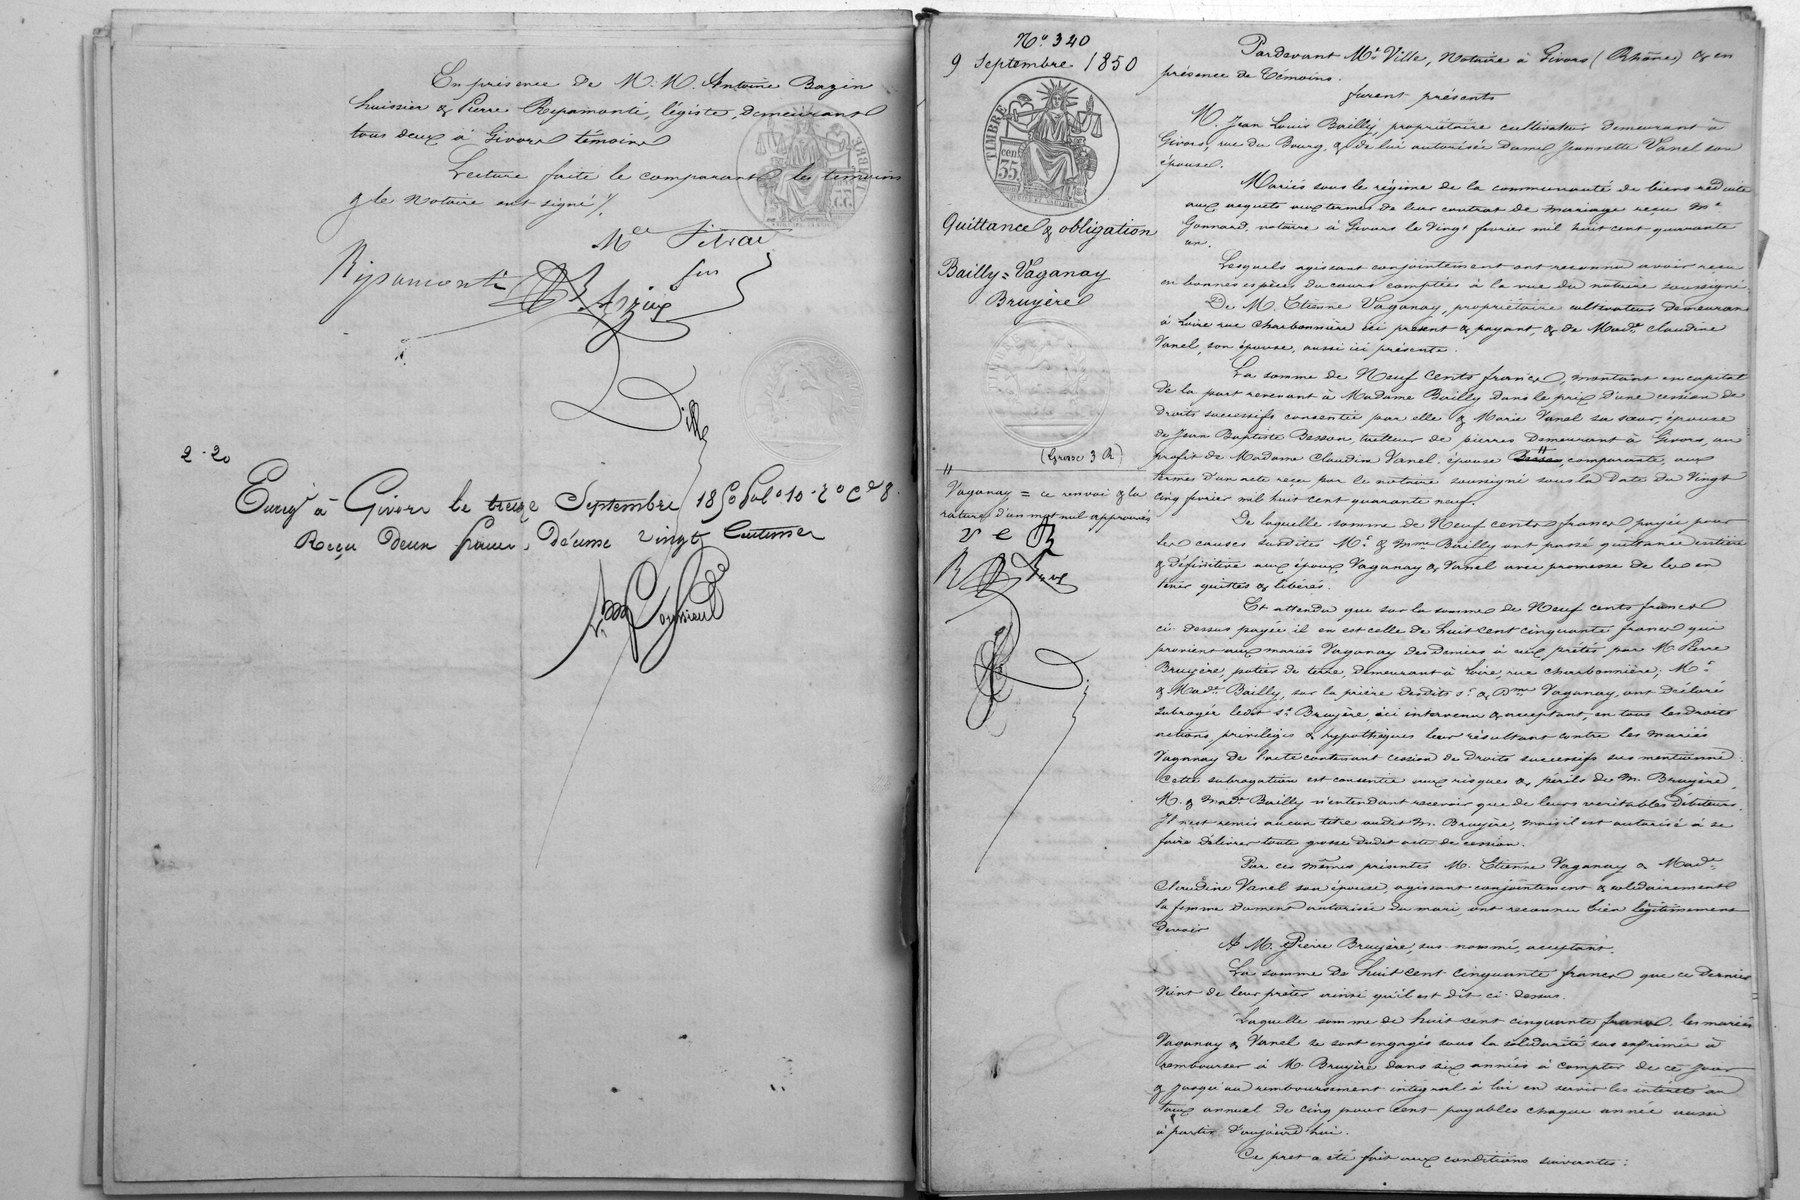 En présence de M. M. Antoine Bazin
huissier & Pierre Ripamonti, légiste, demeurant
tous deux à Givors témoins
Lecture faite le comparant les témoins
& le Notaire ont signé
Ripamonti
fils
Ville
2 - 20
à Givors le treize Septembre 1850 fol° 10 r° Ce 8.
Reçu deux francs, Décime vingt Centimes
N° 340
9 Septembre 1850
TIMBRE
35
Quittance & obligation
Bailly = Vaganay
Bruyère
(Grosse 3 R)
Vaganay = ce renvoi & la
rature d'un mot nul approuvés
Pardevant Me Ville, Notaire à Givors (Rhône) & en
présence de Témoins.
furent présents
M. Jean Louis Bailly, propriétaire cultivateur demeurant à
Givors, rue du Bourg, & de lui autorisée Dame Jeannette Vanel son
épouse.
Mariés sous le régime de la communauté de biens réduite
aux aquets aux termes de leur contrat de mariage reçu Me
Gonnard, notaire à Givors le vingt février mil huit cent quarante
un.
Lesquels agissant conjointement ont reconnu avoir reçu
en bonnes espèces du cours comptées à la vue du notaire soussigné.
De M. Etienne Vaganay, propriétaire cultivateur demeurant
à Loire rue Charbonnière ici présent & payant, & de Made Claudine
Vanel, son épouse, aussi ici présente.
La somme de Neuf Cents francs, montant en capital
de la part revenant à Madame Bailly dans le prix d'une cession de
droits successifs consentie par elle & Marie Vanel sa sœur, épouse
de Jean Baptiste Besson, tailleur de pierres demeurant à Givors, au
profit de Madame Claudine Vanel, épouse comparante, aux
termes d'un acte reçu par le notaire soussigné sous la date du vingt
cinq février mil huit cent quarante neuf.
De laquelle somme de Neuf cents francs payée pour
les causes susdites Mr & Mme Bailly ont passé quittance entière
& définitive aux époux Vaganay & Vanel avec promesse de les en
tenir quittes & libérés.
Et attendu que sur la somme de Neuf cents francs
ci-dessus payée il en est celle de huit cent cinquante francs qui
provient aux mariés Vaganay des deniers à eux prêtés par M. Pierre
Bruyère, potier de terre, demeurant à Loire, rue charbonnière; Mr
& Made Bailly, sur la prière desdits sr & Dme Vaganay, ont déclaré
subroger ledit sr Bruyère, ici intervenu & acceptant, en tous les droits
actions, privilèges & hypothèques leur résultant contre les mariés
Vaganay de l'acte contenant cession de droits successifs sus mentionné.
Cette subrogation est consentie aux risques & périls de M. Bruyère,
M. & Made Bailly n'entendant recevoir que de leurs véritables débiteurs.
Il n'est remis aucun titre audit M. Bruyère, mais il est autorisé à se
faire délivrer toute grosse dudit acte de cession.
Par ces mêmes présentes M. Etienne Vaganay & Made
Claudine Vanel son épouse, agissant conjointement & solidairement
la femme dument autorisée du mari, ont reconnu bien légitimement
devoir
A M. Pierre Bruyère, sus nommé, acceptant.
La somme de huit cent cinquante francs que ce dernier
vient de leur prêter ainsi qu'il est dit ci-dessus.
Laquelle somme de huit cent cinquante francs, les mariés
Vaganay & Vanel se sont engagés sous la solidarité sus exprimée à
rembourser à M. Bruyère dans six années à compter de ce jour
& jusqu'au remboursement intégral à lui en servir les intérêts au
taux annuel de cinq pour cent payables chaque année aussi
à partir d'aujourd'hui.
Ce pret a été fait aux conditions suivantes: